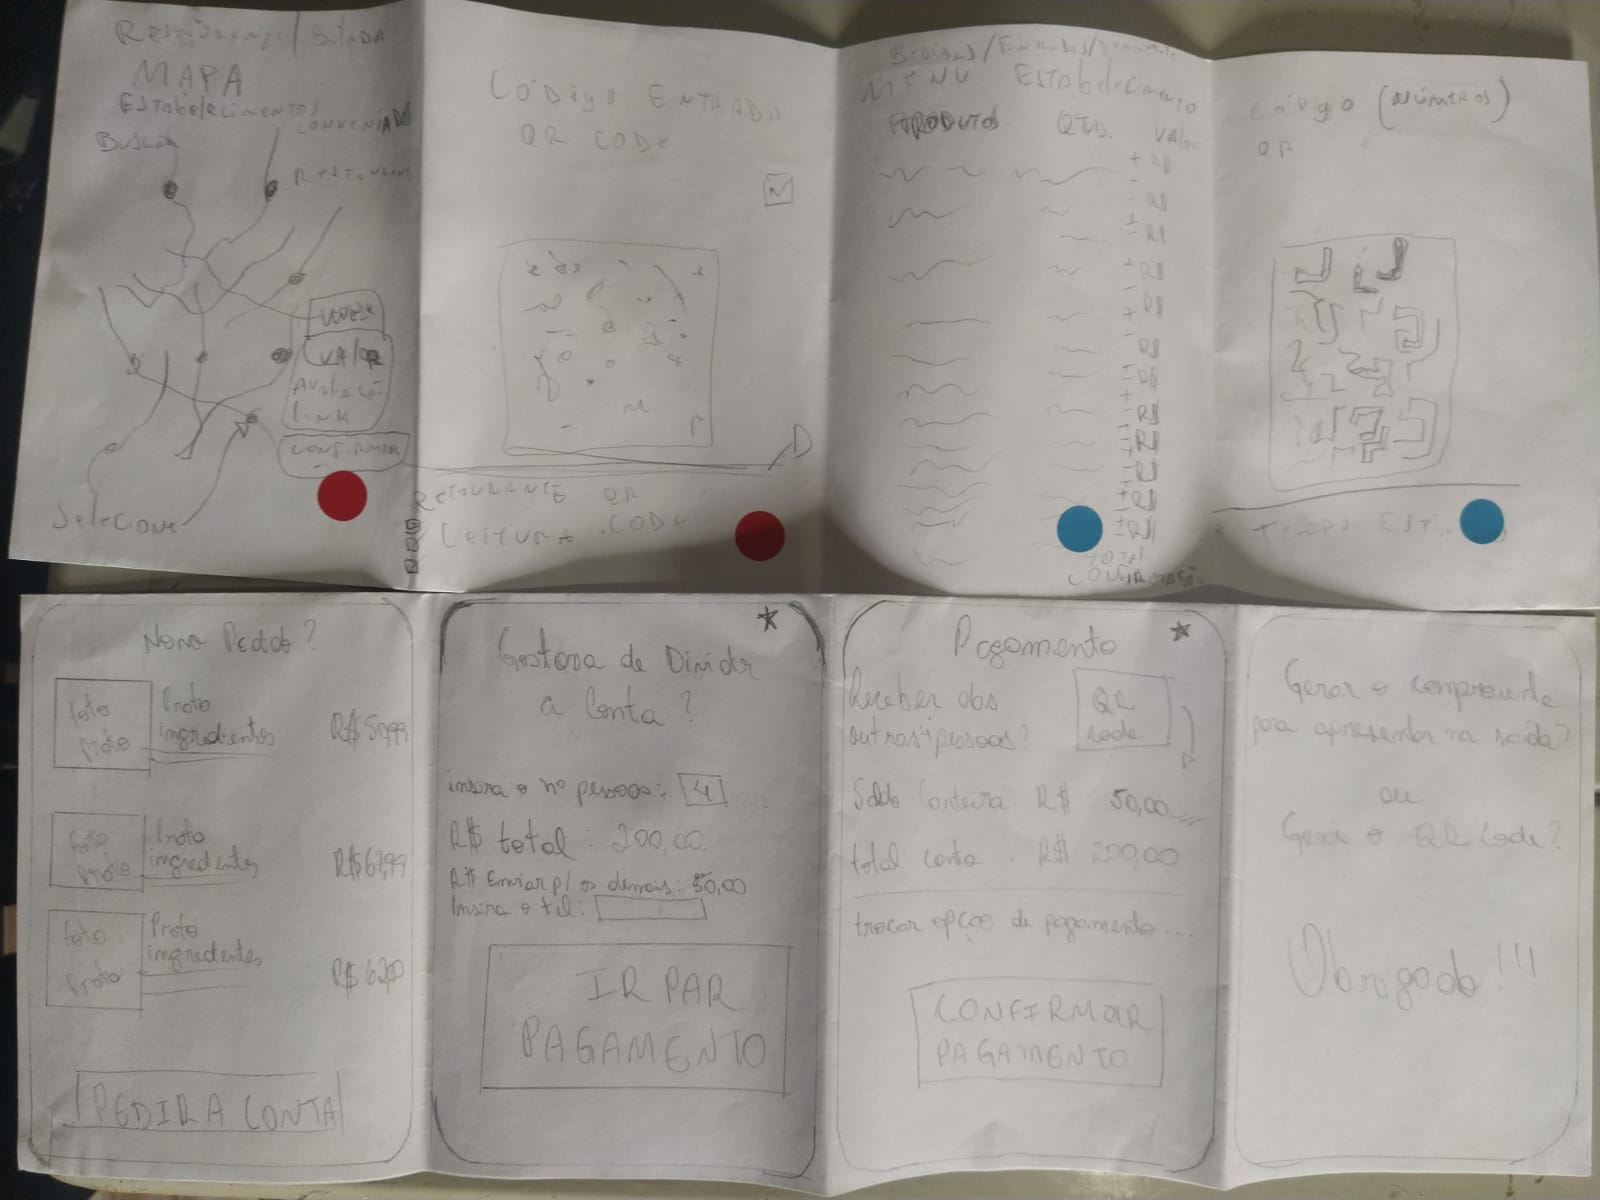 RESTAURANTE / BALADA
MAPA
ESTABELECIMENTOS
CONVENIADOS
BUSCAR
VALOR
AVALIAÇÃO
LINK
CONFIRMAR
SELECIONE
CÓDIGO ENTRADA
QR CODE
RESTAURANTE QR
LEITURA CODE
BEBIDAS / ENTRADAS /
MENU ESTABELECIMENTO
PRODUTOS QTD. VALOR
TOTAL
CONFIRMAÇÃO
CÓDIGO (NÚMEROS)
QR
TEMPO
Novo Pedido?
foto prato
Prato
ingredientes
R$ 50,99
foto prato
Prato
ingredientes
R$ 67,99
foto prato
Prato
ingredientes
R$ 62,00
PEDIR A CONTA
Gostora de Dividir
a Conta?
insira o nº pessoas: 4
R$ total: 200,00
R$ Enviar p/ os demais: 50,00
Insira o tel:
IR PAR
PAGAMENTO
Pagamento
Receber dos
outros 4 pessoas?
QR
code
Saldo Carteira: R$ 50,00
total conta. R$ 200,00
trocar opção de pagamento...
CONFIRMAR
PAGAMENTO
Gerar o comprovante
para apresentar na saída?
ou
Gerar o QR Code?
Obrigado!!!